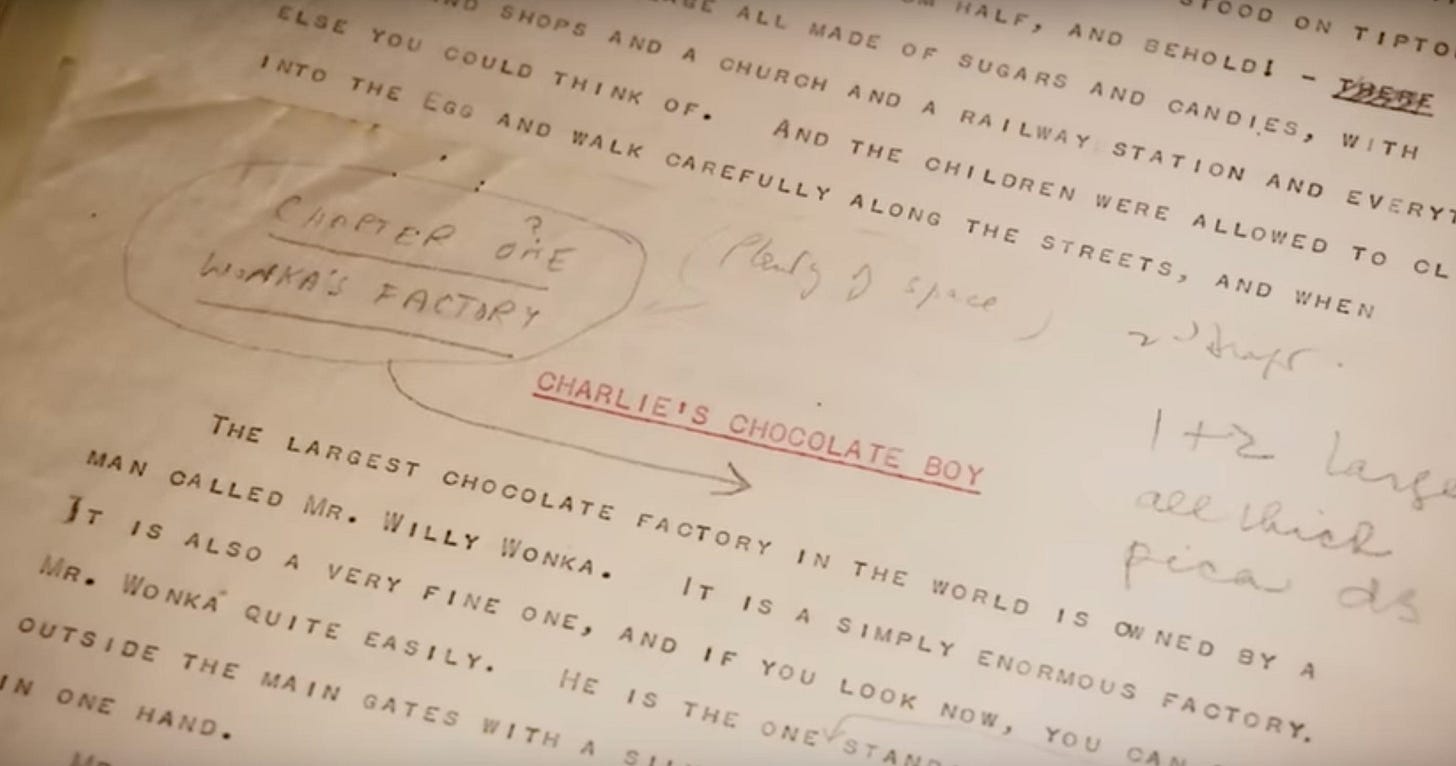 STOOD ON TIPTO
HALF, AND BEHOLD! - THERE
ALL MADE OF SUGARS AND CANDIES, WITH
SHOPS AND A CHURCH AND A RAILWAY STATION AND EVERYT
ELSE YOU COULD THINK OF. AND THE CHILDREN WERE ALLOWED TO CL
INTO THE EGG AND WALK CAREFULLY ALONG THE STREETS, AND WHEN
?
CHAPTER ONE
WONKA'S FACTORY
(Plenty of space)
CHARLIE'S CHOCOLATE BOY
1 + 2 Large
all thick
pica
THE LARGEST CHOCOLATE FACTORY IN THE WORLD IS OWNED BY A
MAN CALLED MR. WILLY WONKA. IT IS A SIMPLY ENORMOUS FACTORY.
IT IS ALSO A VERY FINE ONE, AND IF YOU LOOK NOW, YOU CAN
MR. WONKA QUITE EASILY. HE IS THE ONE STAND
OUTSIDE THE MAIN GATES WITH A
IN ONE HAND.